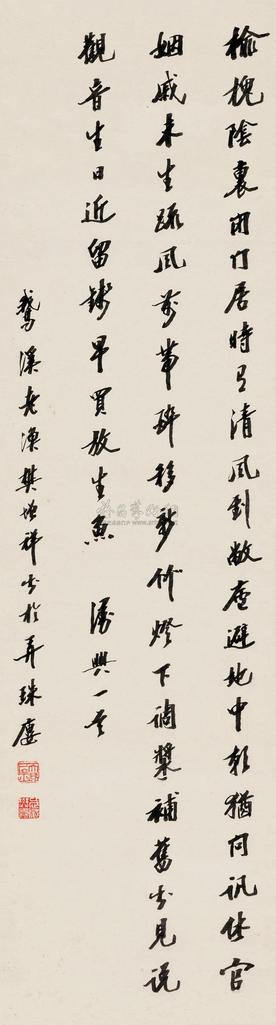 榆槐陰裏閉門居時有清風到敝廬避地中朝猶問訊休官
姻戚未生疎風前帶醉移新竹燈下調漿補舊書見說
觀音生日近留錢早買放生魚 漫興一首
鵞溪老漁樊增祥書於弄珠廔